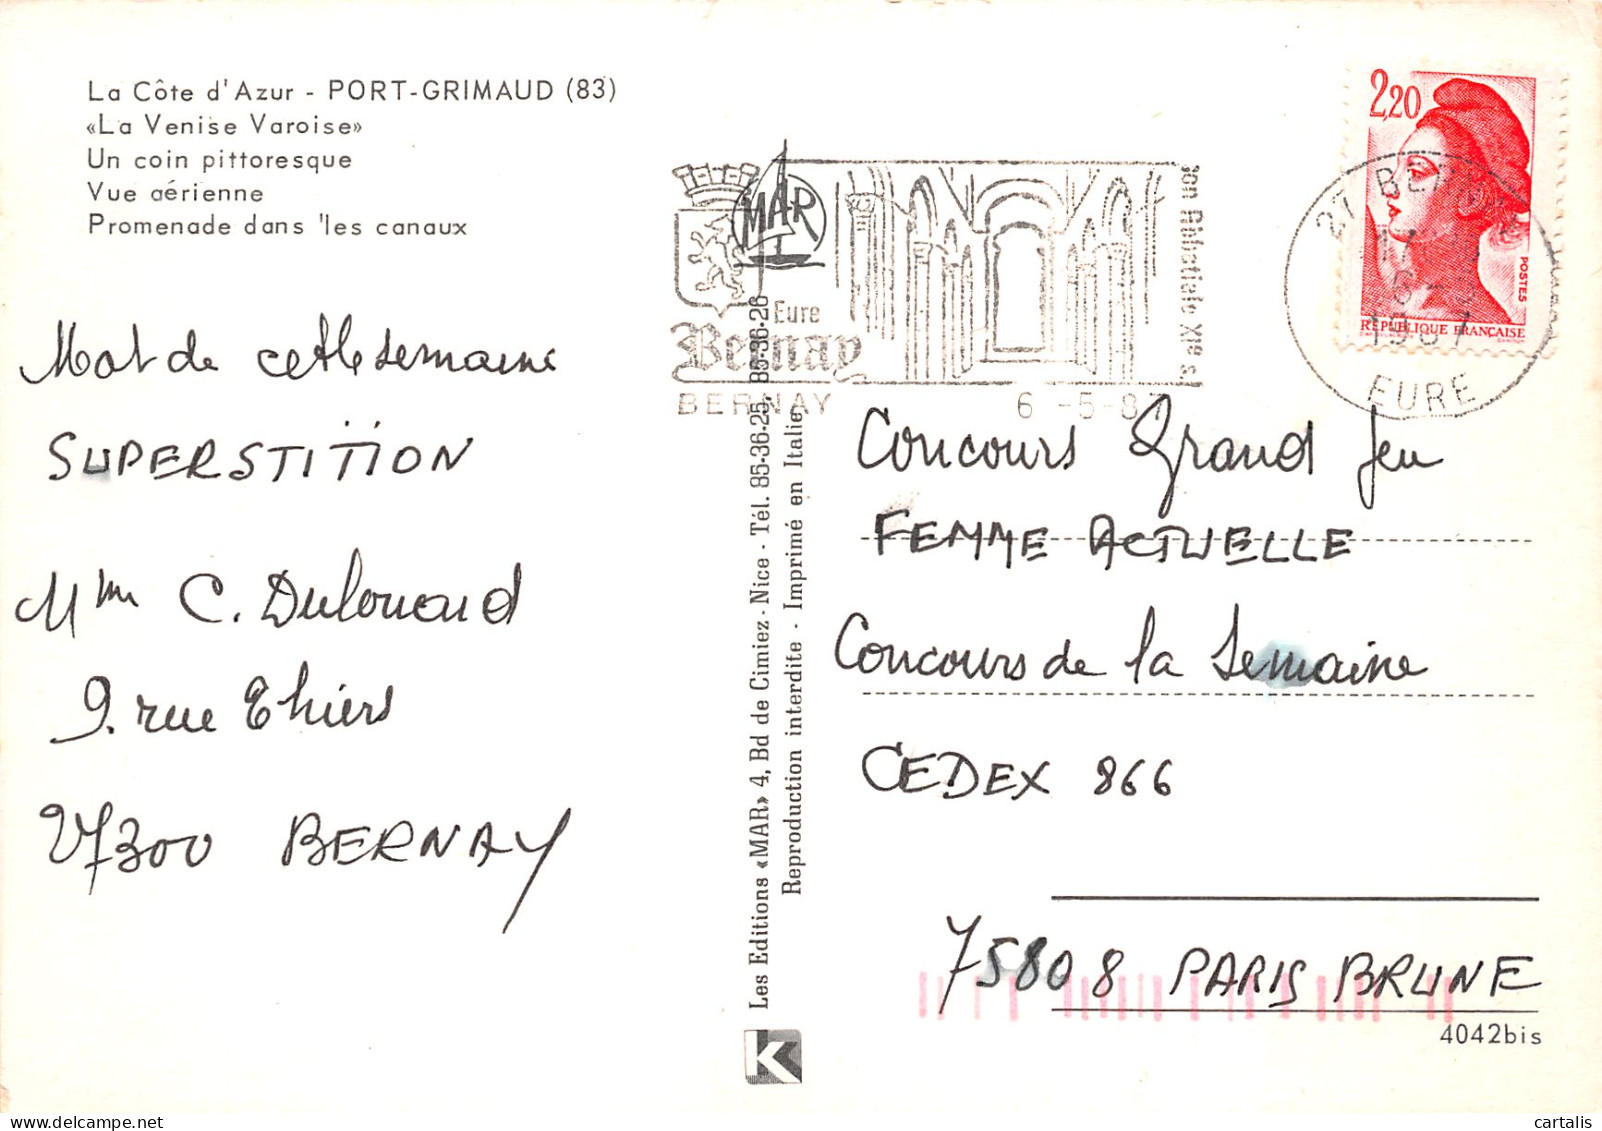 La Côte d'Azur - PORT-GRIMAUD (83)
«La Venise Varoise»
Un coin pittoresque
Vue aérienne
Promenade dans 'les canaux
Mot de cette semaine
SUPERSTITION
Mme C. Dulouard
9. rue Thiers
27300 BERNAY
MAR
Eure
Bernay
BERNAY
6 -5-87
XIe s.
Les Editions «MAR» 4, Bd de Cimiez - Nice - Tél. 85-36-25, 85-36-26
Reproduction interdite - Imprimé en Italie
K
2,20
POSTES
RÉPUBLIQUE FRANÇAISE
27 BERNAY
17
6 - 5
1987
EURE
Concours Grand Jeu
FEMME ACTUELLE
Concours de la Semaine
CEDEX 866
75808 PARIS BRUNE
4042bis
cartalis
delcampe.net